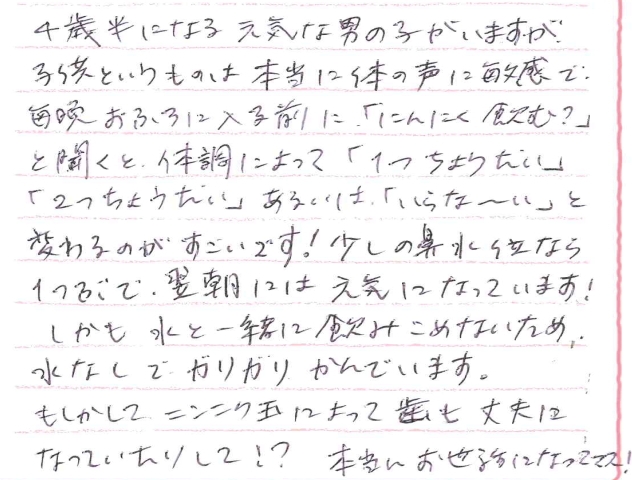 4歳半になる 元気な男の子がいますが
子供というものは 本当に体の声に敏感で
毎晩おふろに入る前に、「にんにく飲む?」
と聞くと、体調によって「1つちょうだい」
「2つちょうだい」あるいは、「いらな〜い」と
変わるのがすごいです!少しの鼻水位なら
1つぶで、翌朝には 元気になっています!
しかも 水と一緒に飲みこめないため、
水なしで ガリガリ かんでいます。
もしかして ニンニク玉によって歯も丈夫に
なっていたりして!? 本当にお世話になってマス!